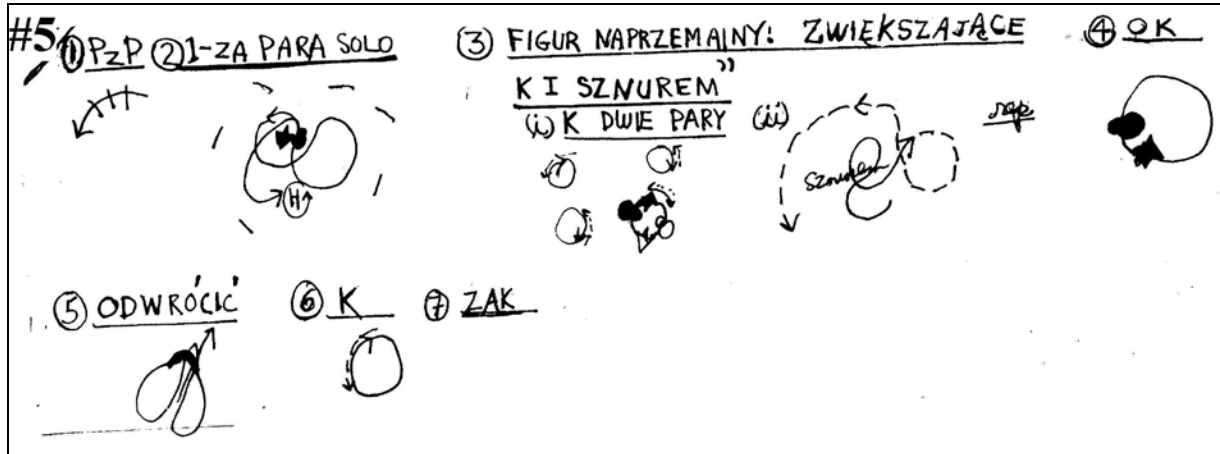 #5 ① PzP ② 1-ZA PARA SOLO
③ FIGUR NAPRZEMAJNY: ZWIĘKSZAJĄCE
④ OK
K I SZNUREM”
(i) K DWIE PARY (ii)
Sznurem
H
⑤ ODWRÓCIĆ ⑥ K ⑦ ZAK